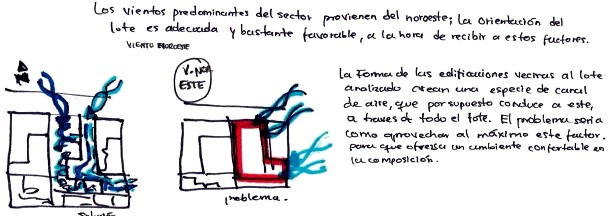 Los vientos predominantes del sector provienen del noroeste; la orientación del
lote es adecuada y bastante favorable, a la hora de recibir a estos factores.
VIENTO NOROESTE
V. NOR
ESTE
La forma de las edificaciones vecinas al lote
analizado crean una especie de canal
de aire, que por supuesto conduce a este,
a traves de todo el lote. El problema seria
como aprovechar al máximo este factor.
para que ofrezca un ambiente confortable en
la composición.
problema.